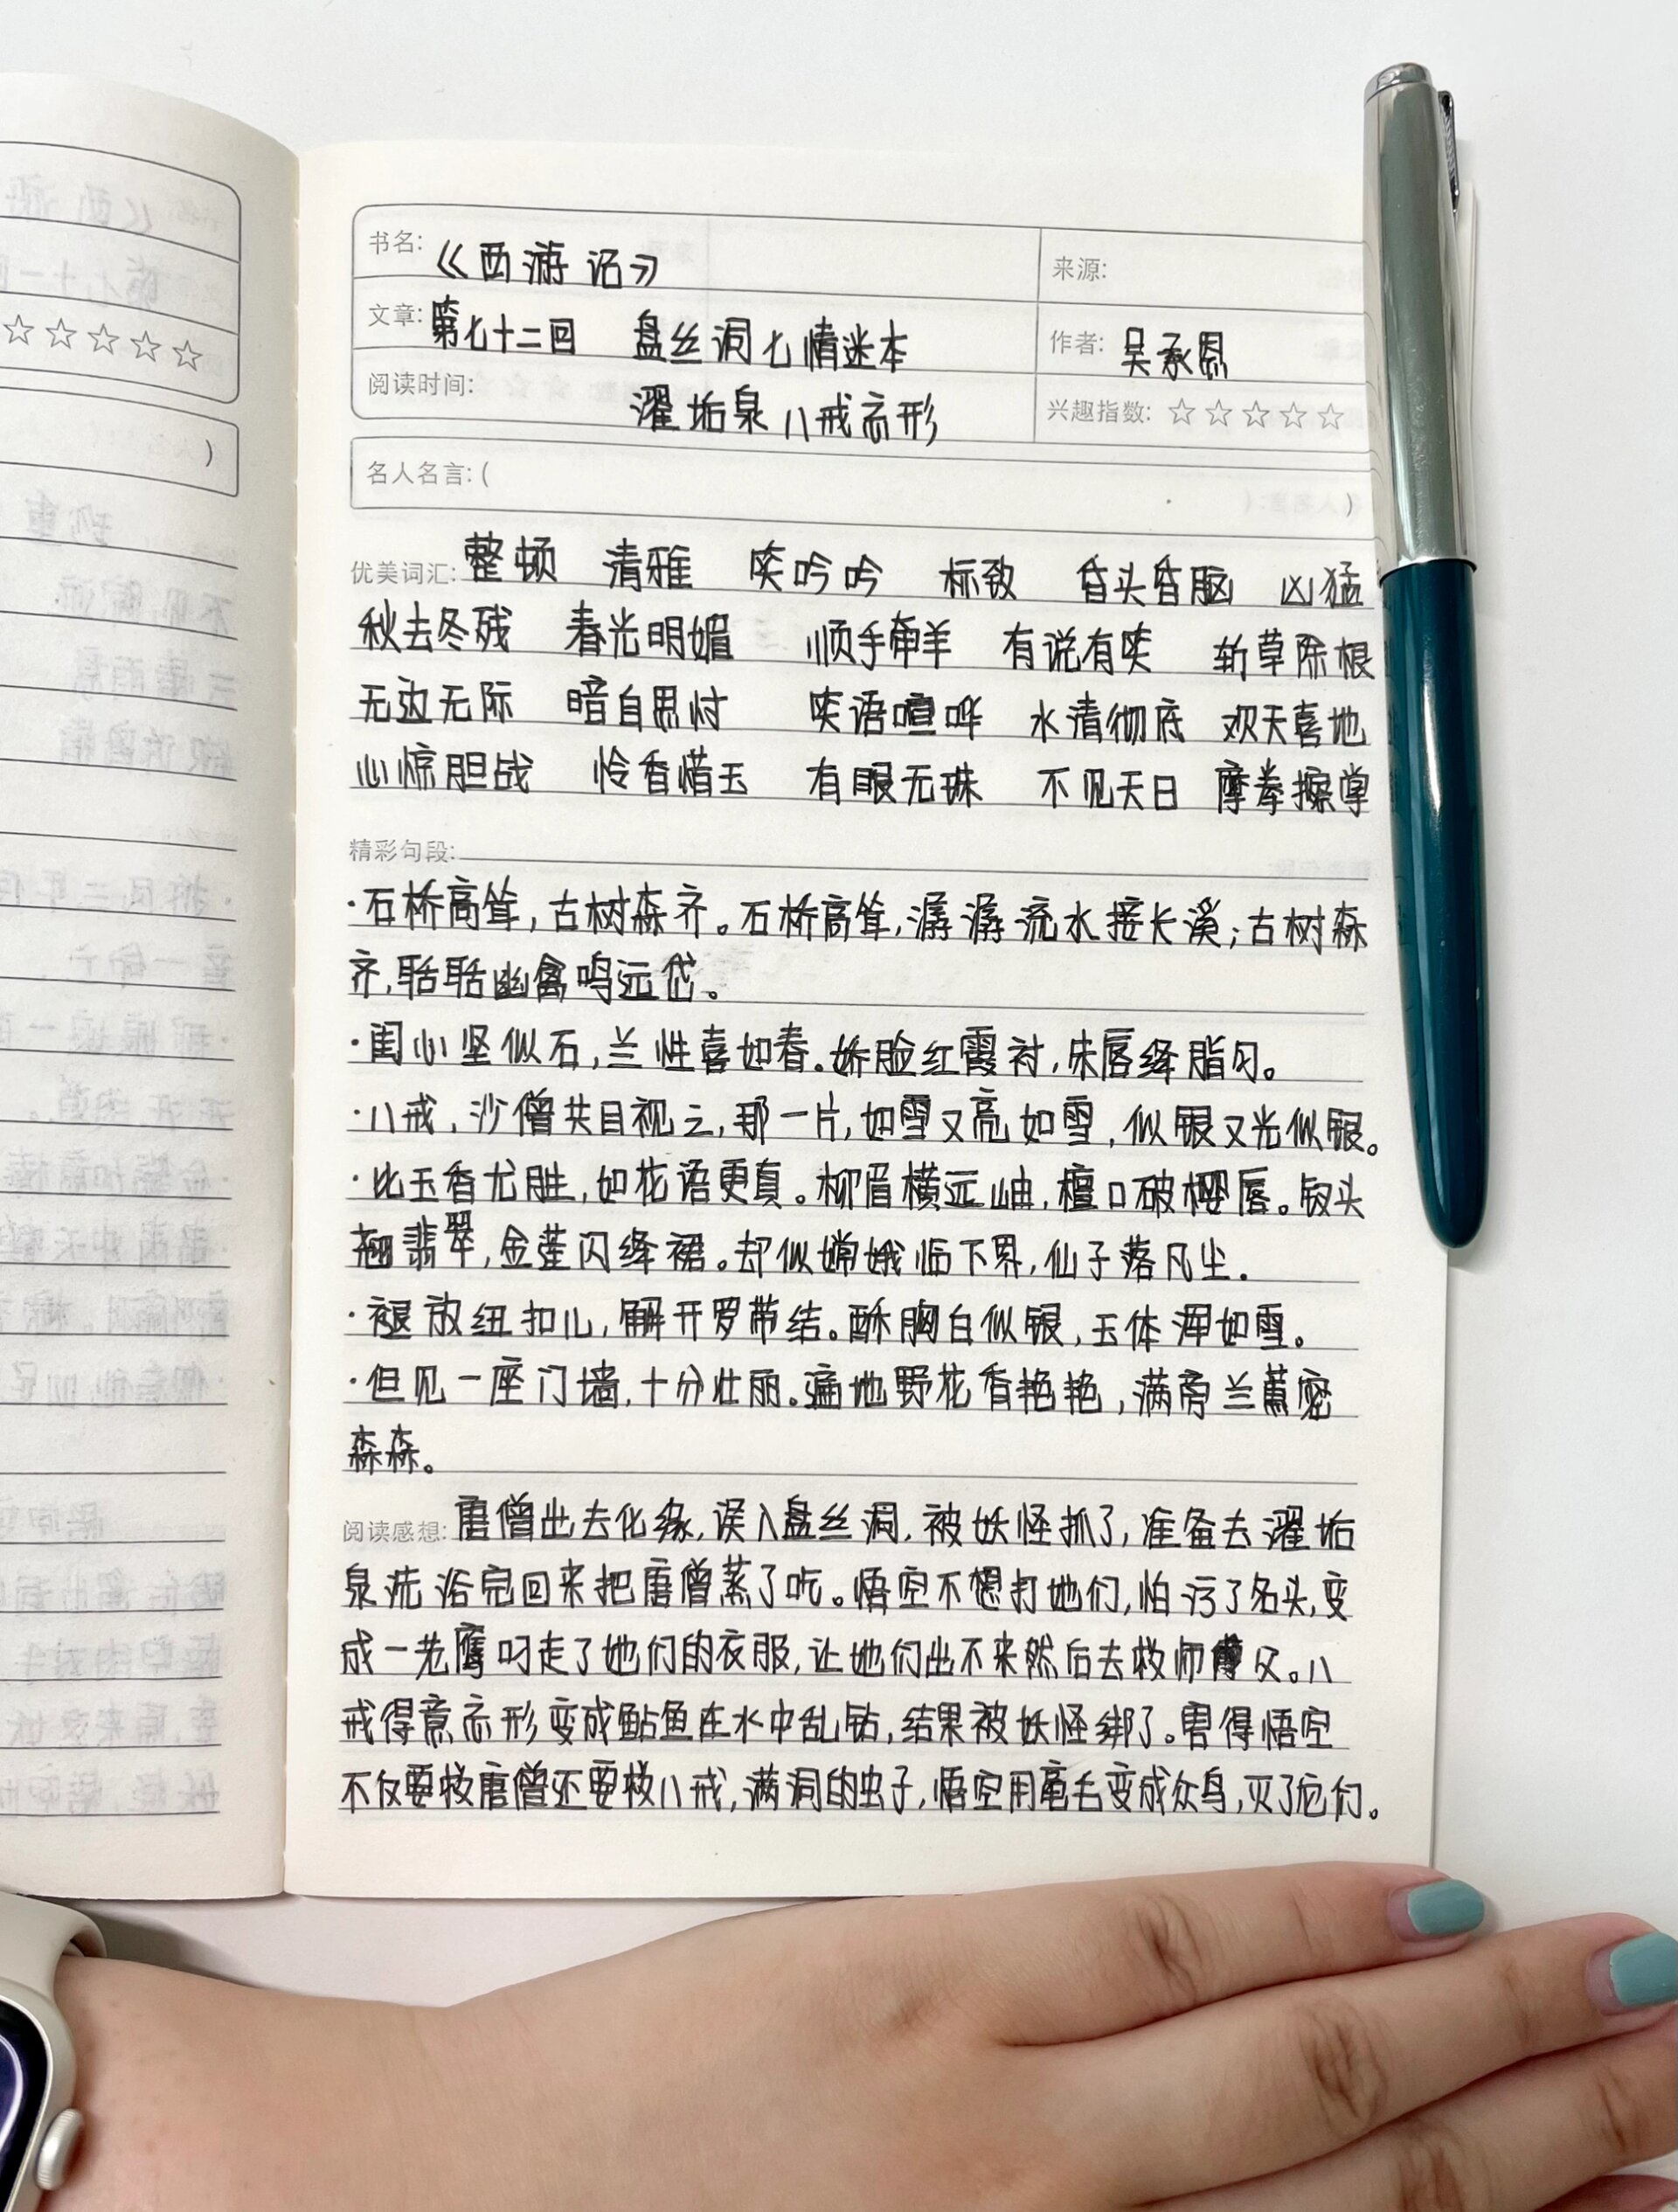 书名: 《西游记》
来源:
文章: 第七十二回 盘丝洞七情迷本
作者: 吴承恩
阅读时间: 濯垢泉八戒忘形
兴趣指数: ☆☆☆☆☆
名人名言: ( )
优美词汇: 整顿 清雅 笑吟吟 标致 昏头昏脑 凶猛
秋去冬残 春光明媚 顺手牵羊 有说有笑 斩草除根
无边无际 暗自思忖 笑语喧哗 水清彻底 欢天喜地
心惊胆战 怜香惜玉 有眼无珠 不见天日 摩拳擦掌
精彩句段:
·石桥高耸,古树森齐。石桥高耸,潺潺流水接长溪;古树森
齐,聒聒幽禽鸣远岱。
·闺心坚似石,兰性喜如春。娇脸红霞衬,朱唇绛脂匀。
·八戒,沙僧共目视之,那一片,如雪又亮如雪,似银又光似银。
·比玉香尤胜,如花语更真。柳眉横远岫,檀口破樱唇。钗头
翘翡翠,金莲闪绛裙。却似嫦娥临下界,仙子落凡尘.
·褪放纽扣儿,解开罗带结。酥胸白似银,玉体浑如雪。
·但见一座门墙,十分壮丽。遍地野花香艳艳,满旁兰蕙密
森森。
阅读感想: 唐僧出去化缘,误入盘丝洞,被妖怪抓了,准备去濯垢
泉洗浴完回来把唐僧蒸了吃。悟空不想打她们,怕污了名头,变
成一老鹰叼走了她们的衣服,让她们出不来然后去救师父。八
戒得意忘形变成鲇鱼在水中乱钻,结果被妖怪绑了。害得悟空
不仅要救唐僧还要救八戒,满洞的虫子,悟空用毫毛变成众鸟,灭了它们。
☆☆☆☆☆
)